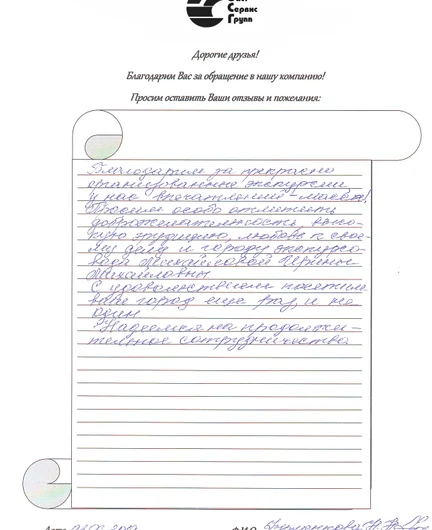 Сервис
Групп
Дорогие друзья!
Благодарим Вас за обращение в нашу компанию!
Просим оставить Ваши отзывы и пожелания:
Благодарим за прекрасно
организованные экскурсии
у нас впечатление - масса!
Просим особо отметить
доброжелательность, высо-
кую эрудицию, любовь к свое-
му делу и городу экскурсо-
вода Михайловой Ирины
Михайловны
С удовольствием посетим
ваш город еще раз и не
один
Надеемся на продолжи-
тельное сотрудничество